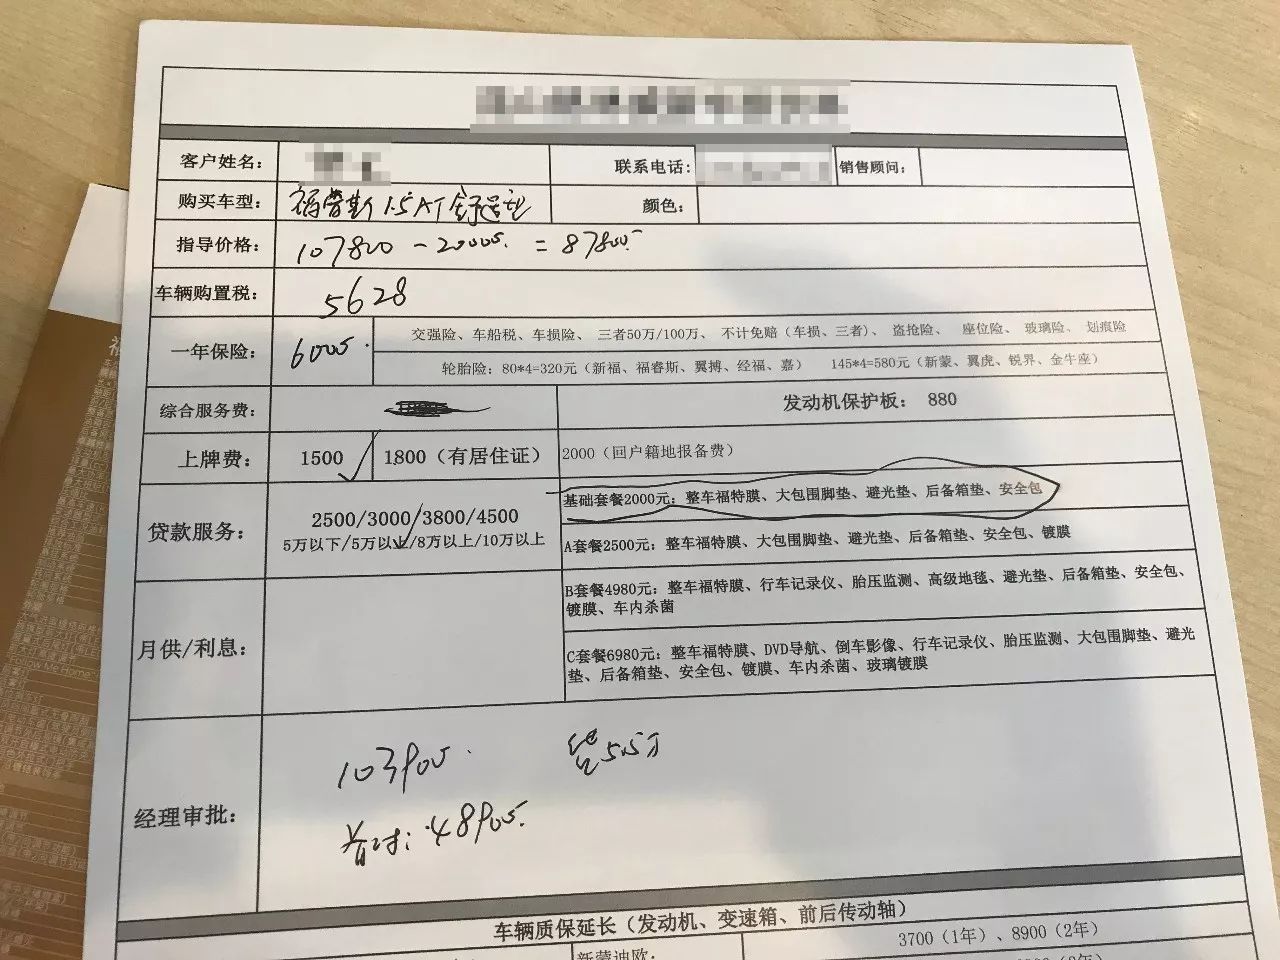 客户姓名：
联系电话：
销售顾问：
购买车型：
福睿斯 1.5AT 舒适型
颜色：
指导价格：
107800 - 20000 = 87800
车辆购置税：
5628
一年保险：
6000
交强险、车船税、车损险、 三者50万/100万、 不计免赔（车损、三者）、 盗抢险、 座位险、 玻璃险、 划痕险
轮胎险：80*4=320元（新福、福睿斯、翼搏、经福、嘉） 145*4=580元（新蒙、翼虎、锐界、金牛座）
综合服务费：
发动机保护板： 880
上牌费：
1500
1800（有居住证）
2000（回户籍地报备费）
贷款服务：
2500/3000/3800/4500
5万以下/5万以上/8万以上/10万以上
基础套餐2000元：整车福特膜、大包围脚垫、避光垫、后备箱垫、安全包
A套餐2500元：整车福特膜、大包围脚垫、避光垫、后备箱垫、安全包、镀膜
B套餐4980元：整车福特膜、行车记录仪、胎压监测、高级地毯、避光垫、后备箱垫、安全包、
镀膜、车内杀菌
月供/利息：
C套餐6980元：整车福特膜、DVD导航、倒车影像、行车记录仪、胎压监测、大包围脚垫、避光
垫、后备箱垫、安全包、镀膜、车内杀菌、玻璃镀膜
经理审批：
103900
5.5万
首付：48900
车辆质保延长（发动机、变速箱、前后传动轴）
新蒙迪欧：
3700（1年）、8900（2年）